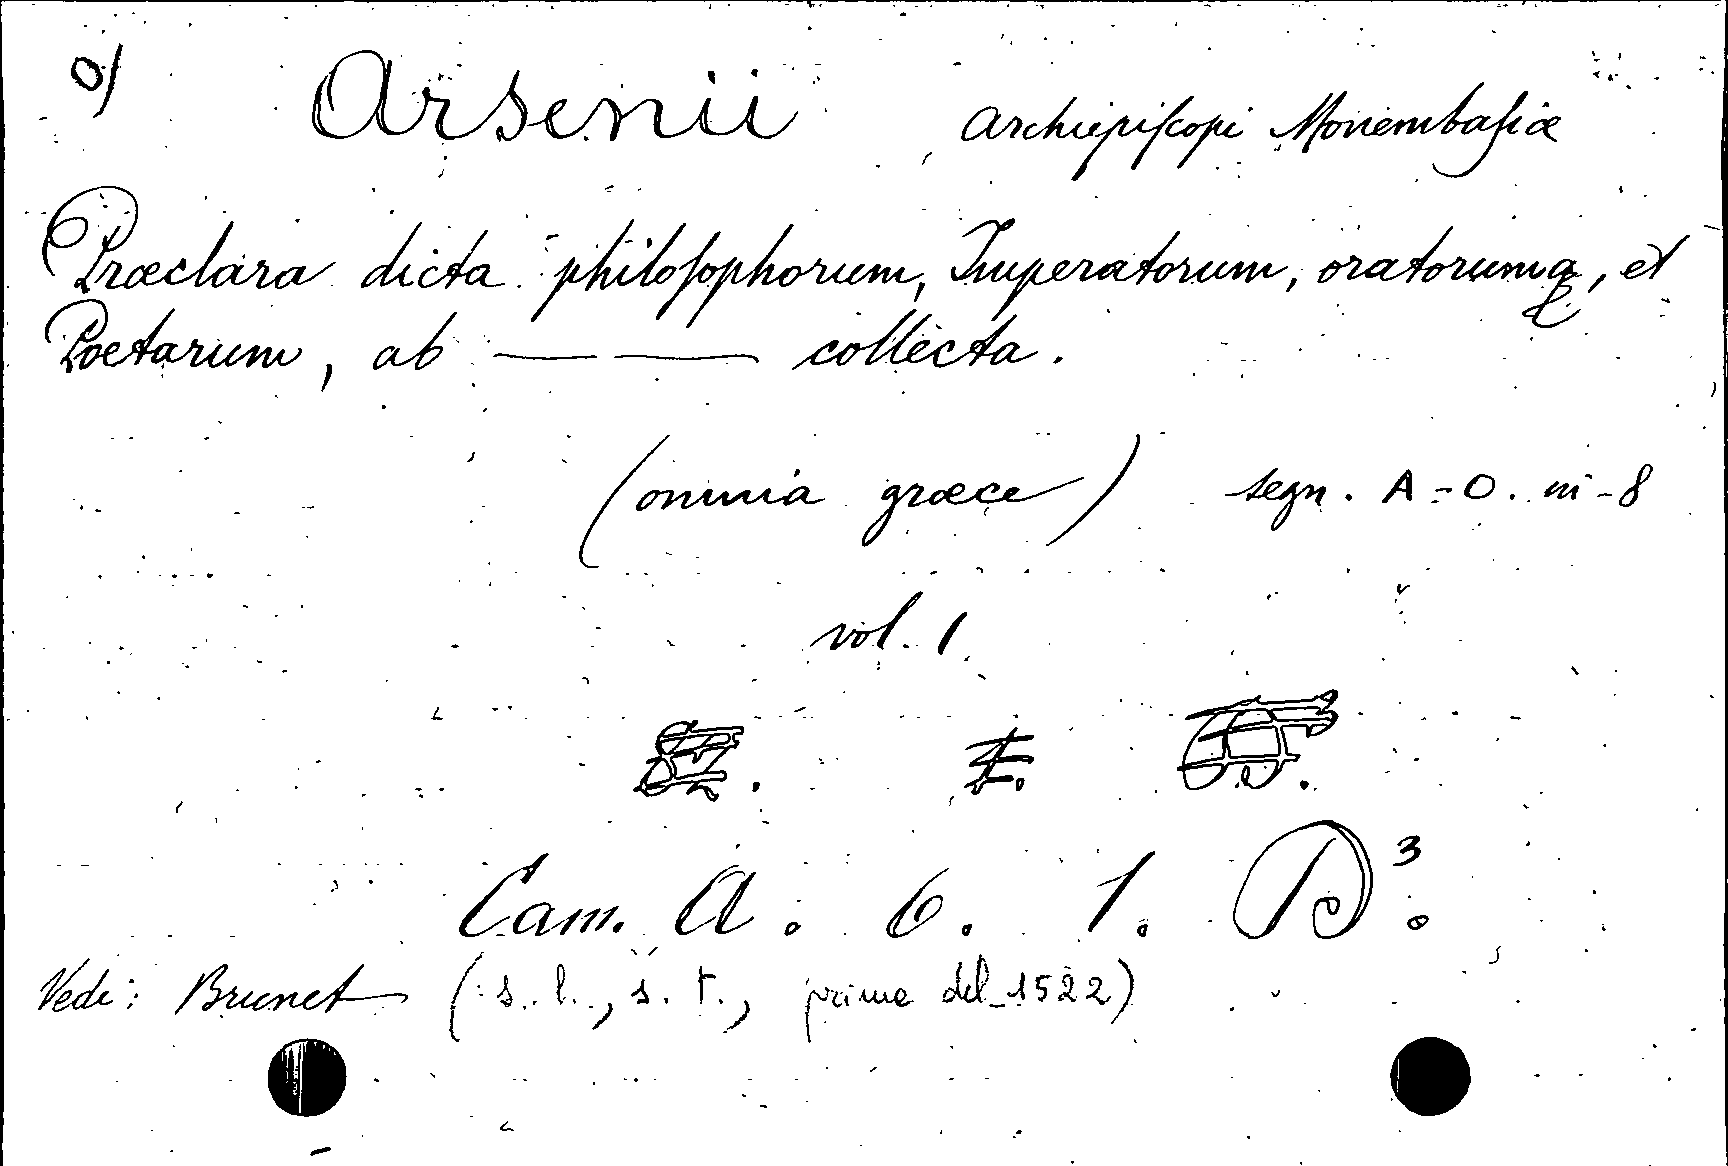 0/ Arsenii Archiepiſcopi Monembaſiæ
Præclara dicta philoſophorum, Imperatorum, oratorumq, et
Poetarum, ab —— —— collecta.
(omnia græce) segn. A=O. in-8
vol. 1.
Cam. A. 6. 1. D³.
Vedi: Brunet (s. l., s. t., prima del 1522)